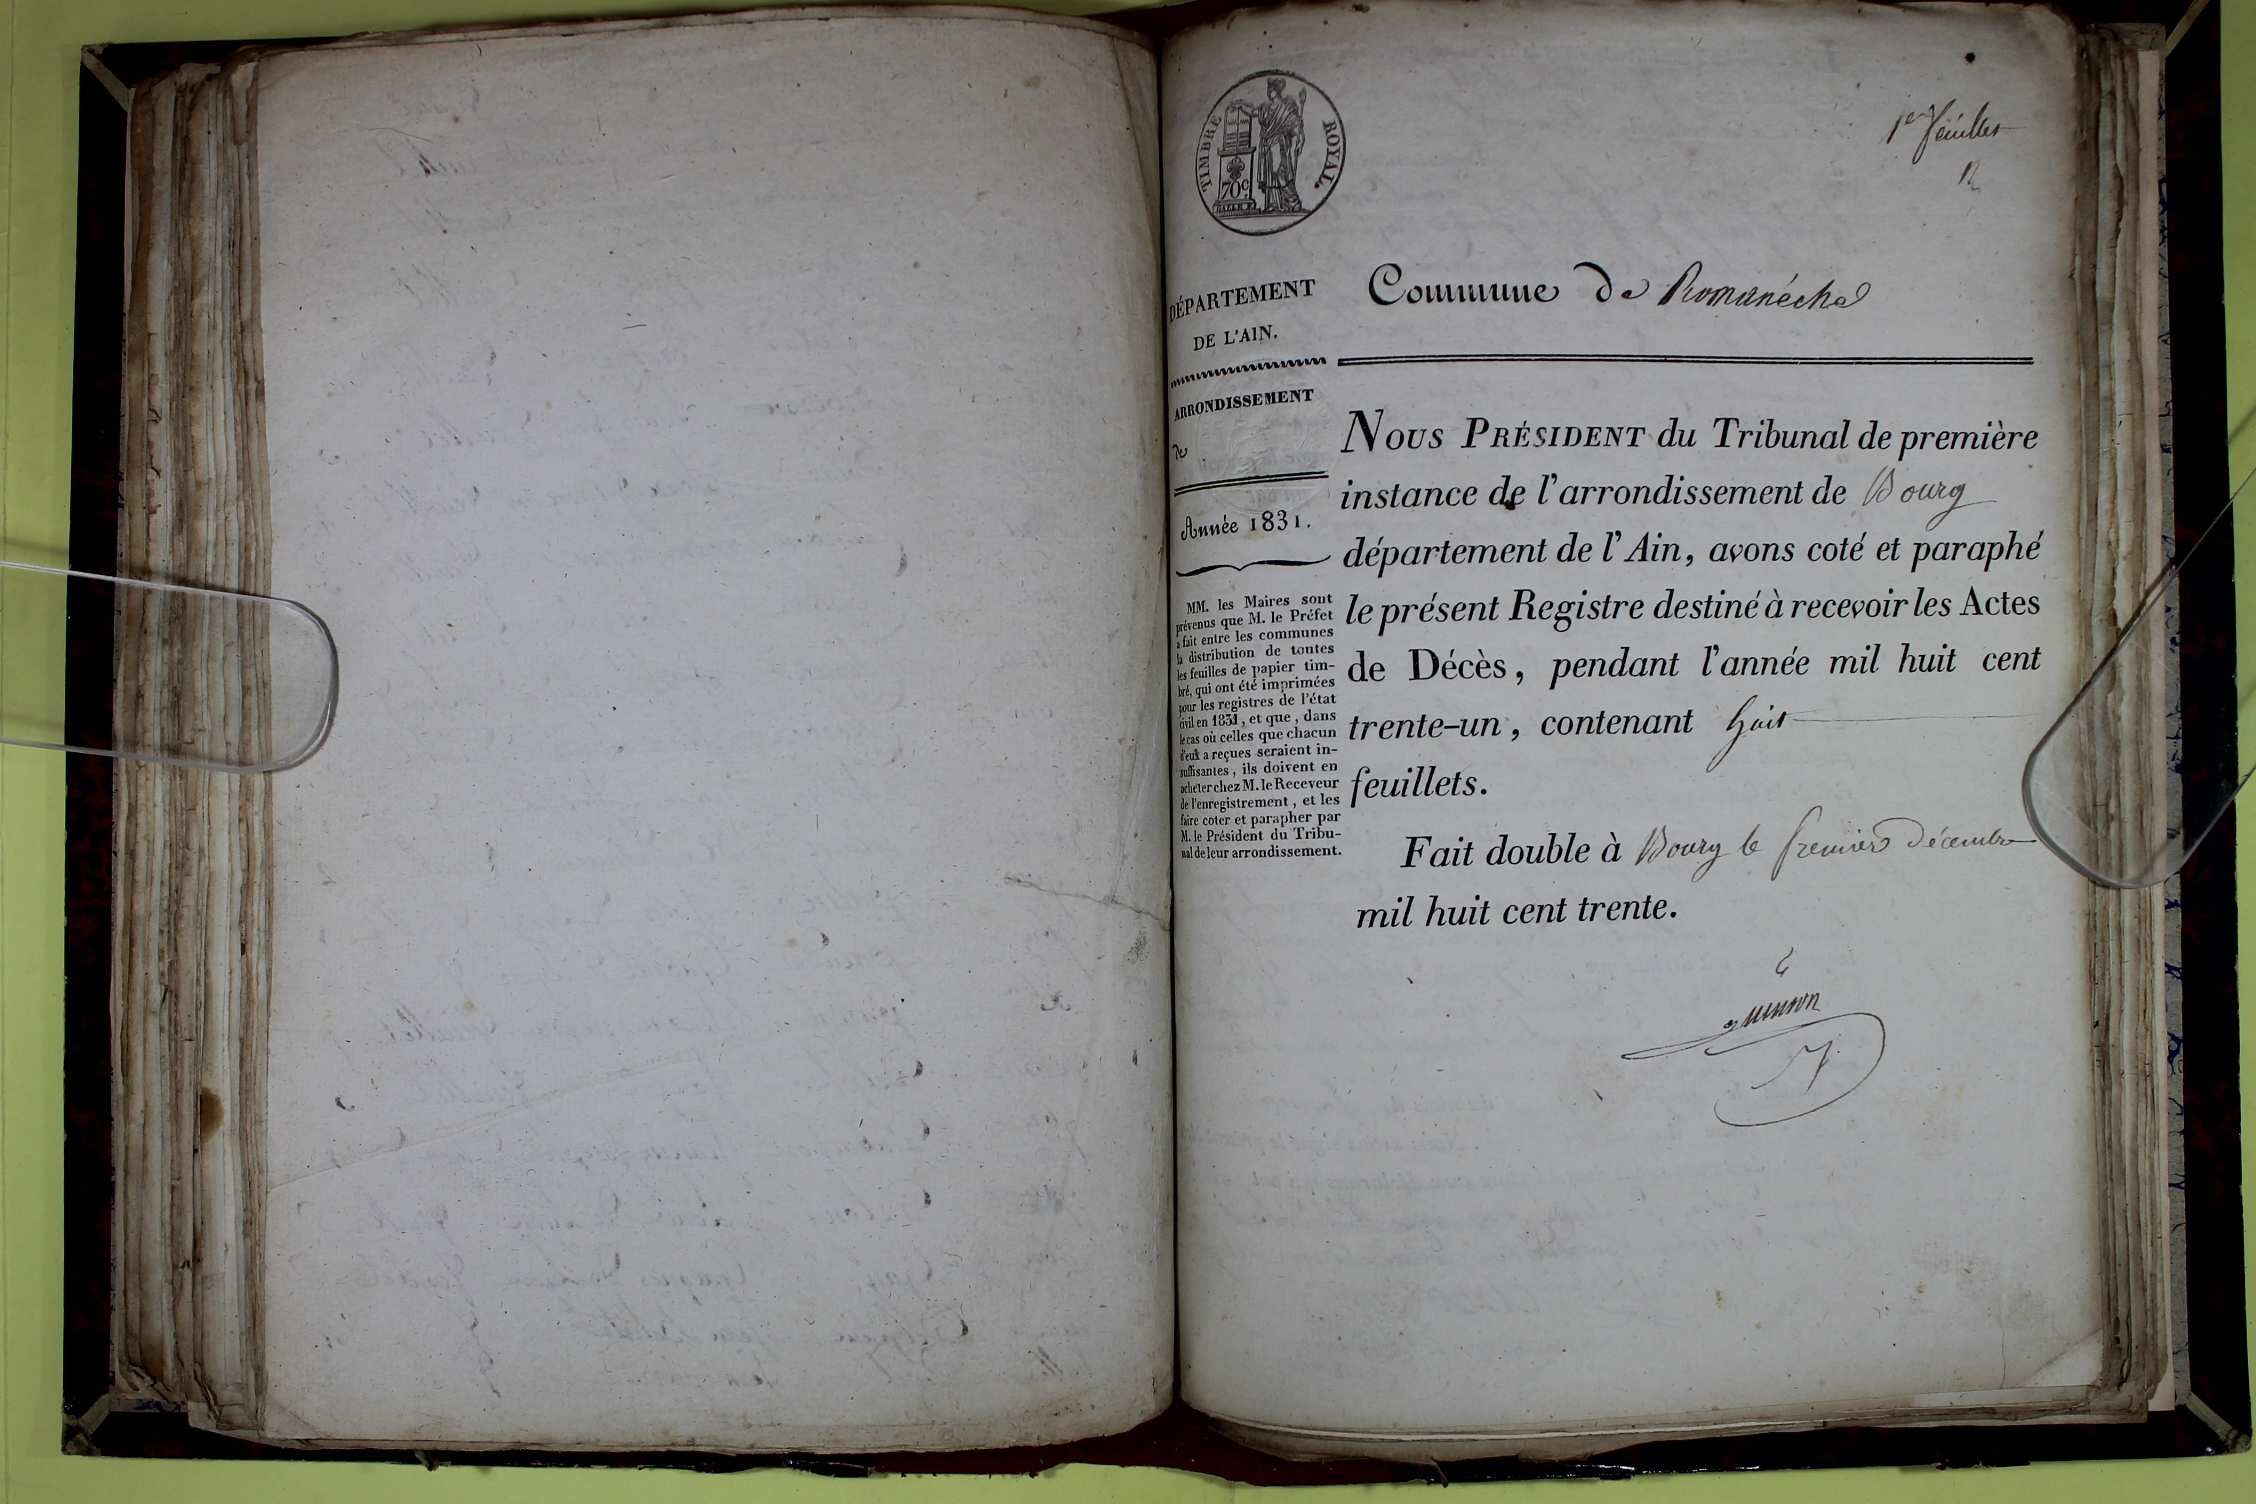 1er feuillet
TIMBRE ROYAL.
70c
DÉPARTEMENT
DE L'AIN.
ARRONDISSEMENT
de
Année 1831.
MM. les Maires sont
prévenus que M. le Préfet
a fait entre les communes
la distribution de toutes
les feuilles de papier tim-
bré, qui ont été imprimées
pour les registres de l'état
civil en 1831, et que, dans
le cas où celles que chacun
d'eux a reçues seraient in-
suffisantes, ils doivent en
acheter chez M. le Receveur
de l'enregistrement, et les
faire coter et parapher par
M. le Président du Tribu-
nal de leur arrondissement.
Commune de Romanéche
NOUS PRÉSIDENT du Tribunal de première
instance de l'arrondissement de Bourg
département de l'Ain, avons coté et paraphé
le présent Registre destiné à recevoir les Actes
de Décès, pendant l'année mil huit cent
trente-un, contenant huit
feuillets.
Fait double à Bourg le premier décembre
mil huit cent trente.